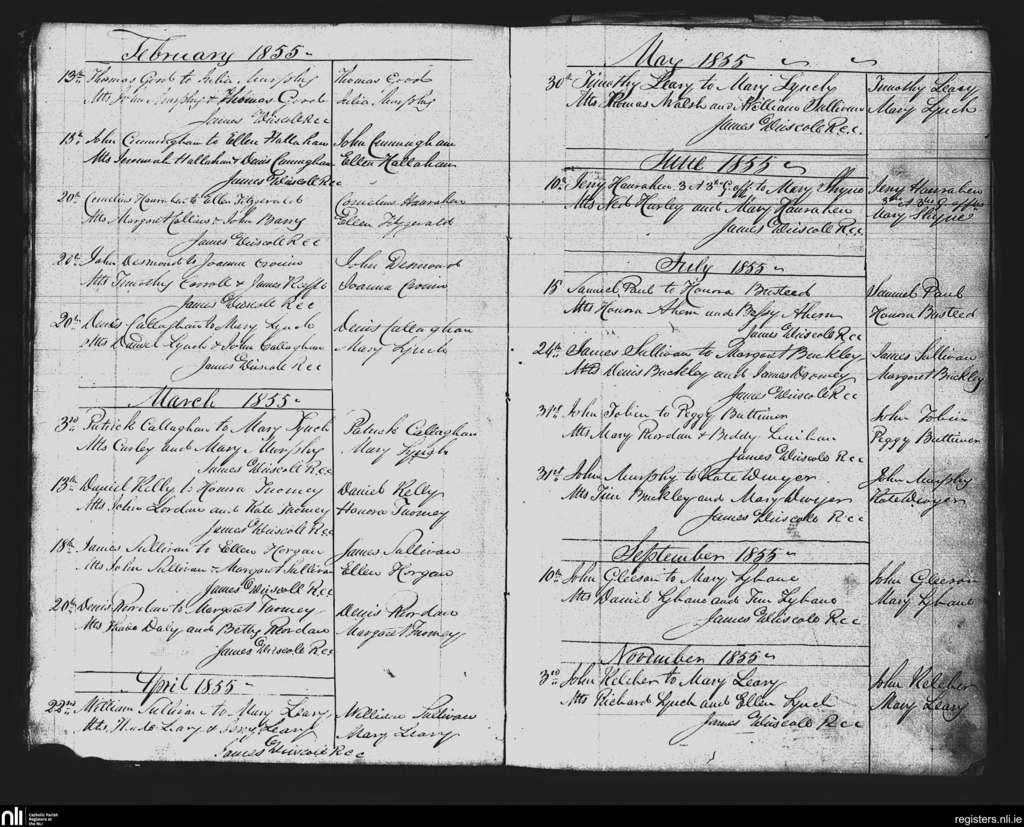 February 1855
13th Thomas Good to Julia Murphy Thomas Good
Atts John Murphy & Thomas Good Julia Murphy
James Driscoll Rcc
13th John Cunningham to Ellen Hallaham John Cunnugham
Atts Jeremiah Hallahan & Denis Cunnugham Ellen Hallaham
James Driscoll Rcc
20th Cornelius Hanrahan to Ellen Fitzgerald Cornelius Hanrahan
Atts Margaret Collins & John Barry Ellen Fitzgerald
James Driscoll Rcc
20th John Desmond to Joanna Cronin John Desmond
Atts Timothy Carroll & James Joanna Cronin
James Driscoll Rcc
20th Denis Callaghan to Mary Lynch Denis Callaghan
Atts Daniel Lynch & John Callaghan Mary Lynch
James Driscoll Rcc
March 1855
3rd Patrick Callaghan to Mary Lynch Patrick Callaghan
Atts Curley and Mary Murphy Mary Lynch
James Driscoll Rcc
13th Daniel Kelly to Honora Twomey Daniel Kelly
Atts John Lordan and Kate Twomey Honora Twomey
James Driscoll Rcc
18th James Sullivan to Ellen Horgan James Sullivan
Atts John Sullivan & Margaret Sullivan Ellen Horgan
James Driscoll Rcc
20th Denis Riordan to Margret Twomey Denis Riordan
Atts Daly and Betty Riordan Margaret Twomey
James Driscoll Rcc
April 1855
22nd William Sullivan to Mary Leary William Sullivan
Atts Leary & Leary Mary Leary
James Driscoll Rcc
May 1855
30th Timothy Leary to Mary Lynch Timothy Leary
Atts Thomas Walsh and William Sullivan Mary Lynch
James Driscoll Rcc
June 1855
10th Jerry Hanrahen 3 & 3rd to Mary Shyne Jerry Hanrahen
Atts Ned Hurley and Mary Hanrahen Mary Shyne
James Driscoll Rcc
July 1855
15 Samuel Paul to Honora Busteed Samuel Paul
Atts Honora Ahern and Bessy Ahern Honora Busteed
James Driscoll Rcc
24th James Sullivan to Margaret Buckley James Sullivan
Atts Denis Buckley and James Dromey Margaret Buckley
James Driscoll Rcc
31st John Tobin to Peggy Buttimer John Tobin
Atts Mary Riordan & Biddy Linihan Peggy Buttimer
James Driscoll Rcc
31st John Murphy to Kate Dwyer John Murphy
Atts Tim Buckley and Mary Dwyer Kate Dwyer
James Driscoll Rcc
September 1855
10th John Gleeson to Mary Lyhane John Gleeson
Atts Daniel Lyhane and Tim Lyhane Mary Lyhane
James Driscoll Rcc
November 1855
3rd John Kelcher to Mary Leary John Kelcher
Atts Richard Lynch and Ellen Lynch Mary Leary
James Driscoll Rcc
nli Catholic Parish Registers at the NLI registers.nli.ie